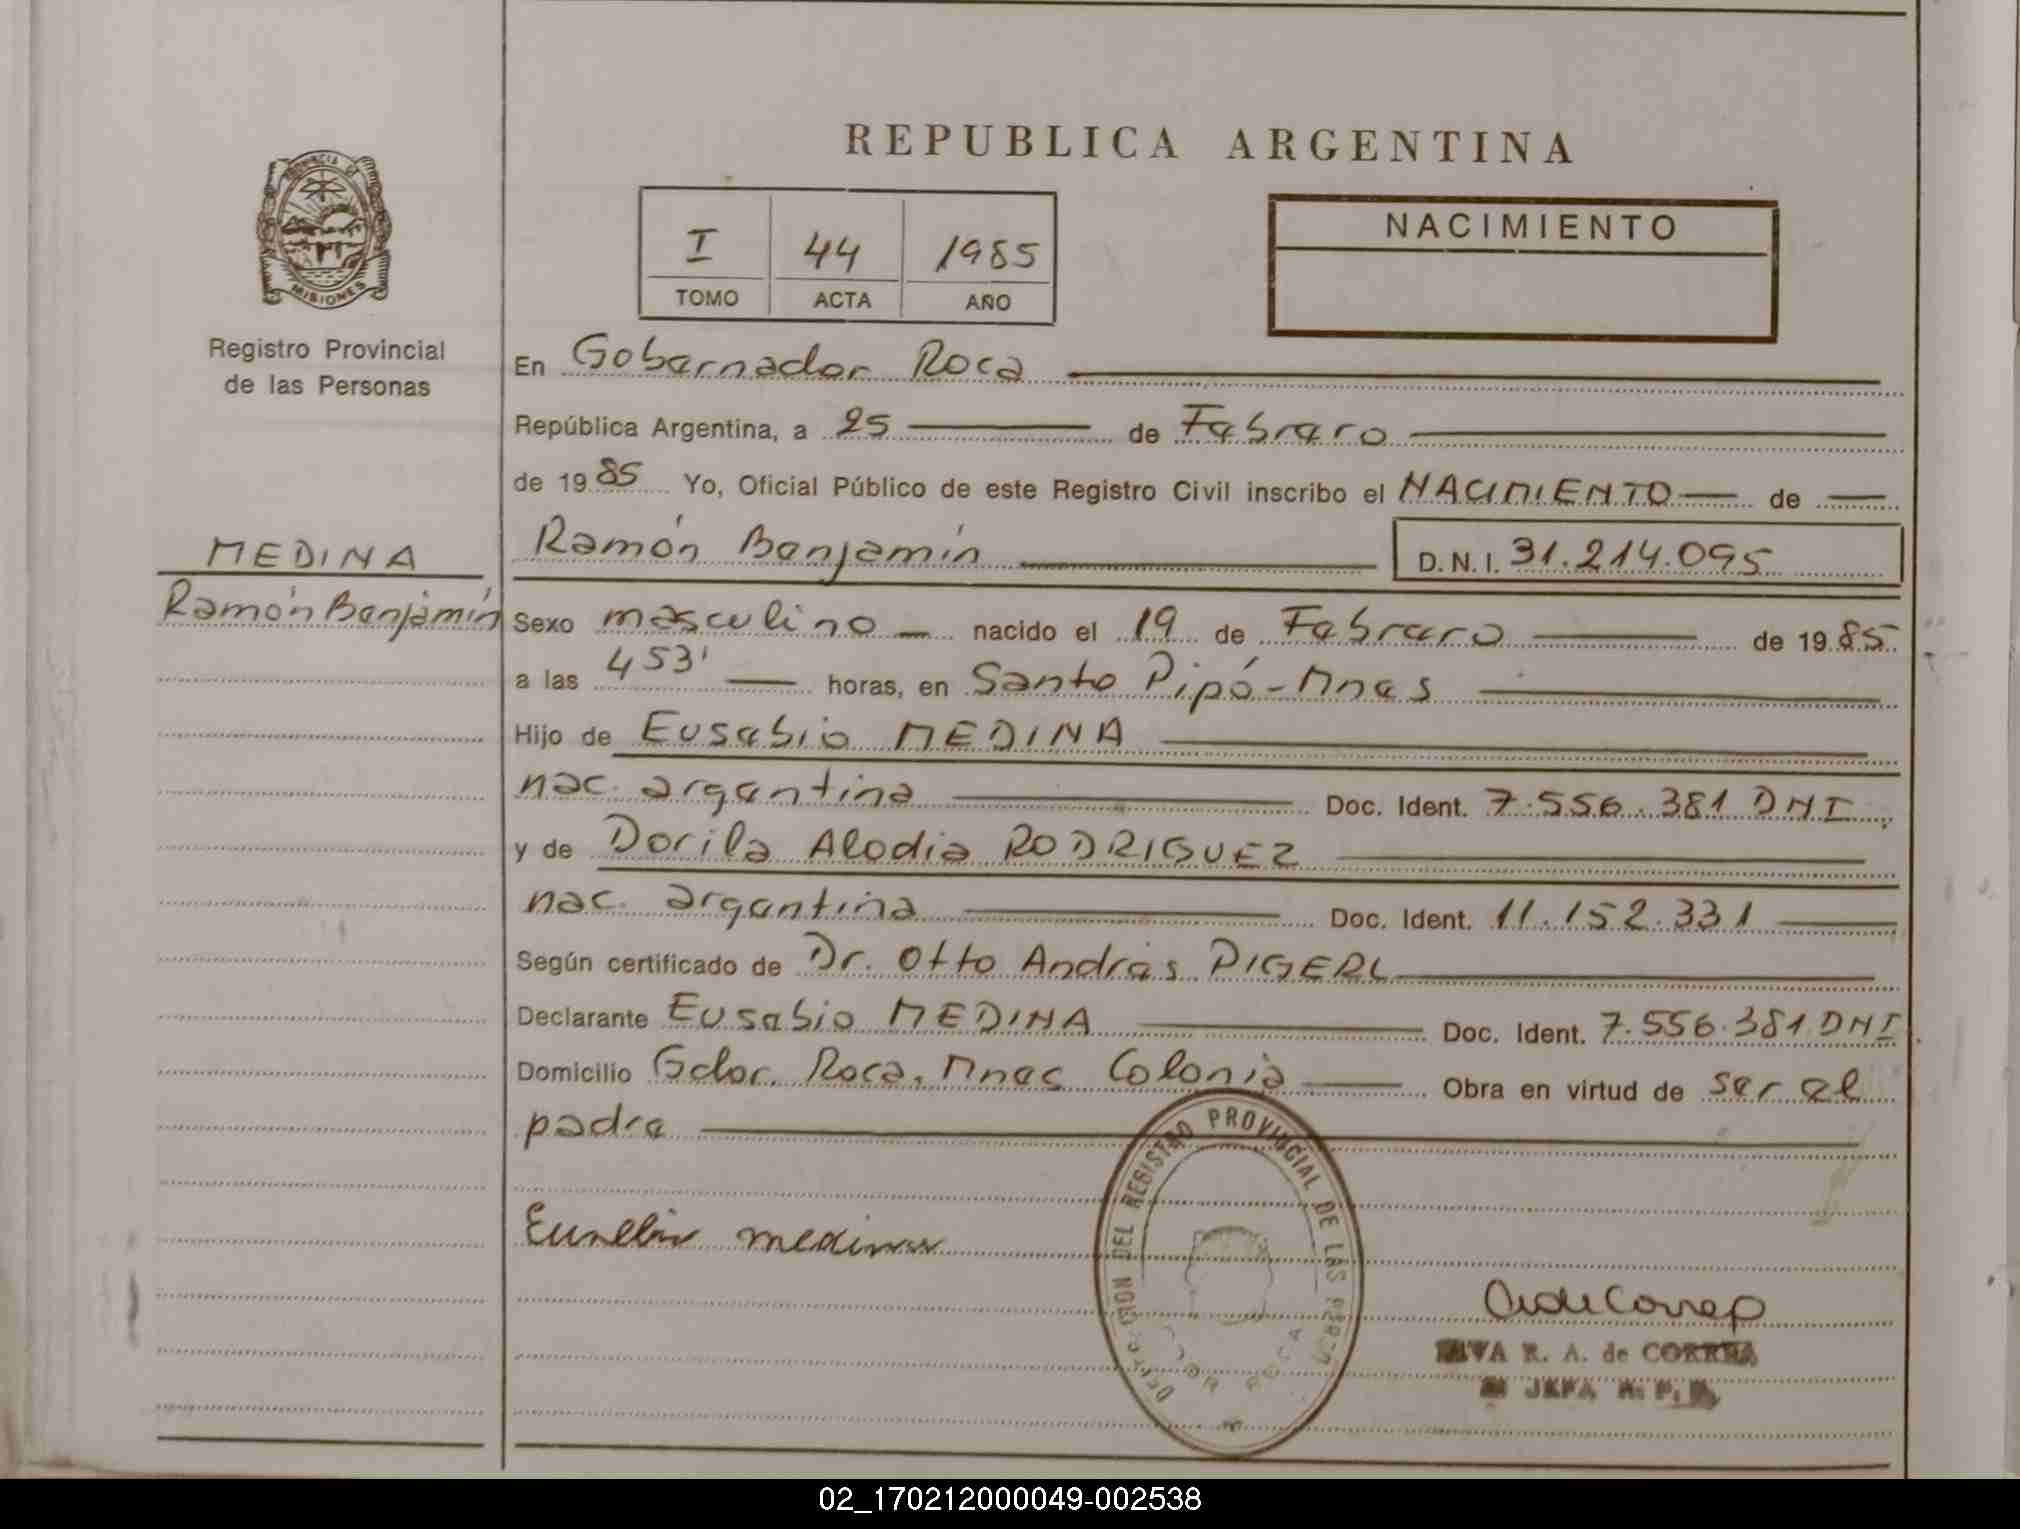 REPUBLICA ARGENTINA
PROVINCIA DE
MISIONES
Registro Provincial
de las Personas
I 44 1985
TOMO ACTA AÑO
NACIMIENTO
En Gobernador Roca
República Argentina, a 25 de Febrero
de 1985 Yo, Oficial Público de este Registro Civil inscribo el NACIMIENTO de
MEDINA
Ramón Benjamín
Ramón Benjamín D.N.I. 31.214.095
Sexo masculino nacido el 19 de Febrero de 1985
a las 453' horas, en Santo Pipó-Mnes
Hijo de Eusebio MEDINA
nac. argentina Doc. Ident. 7.556.381 DNI
y de Dorila Alodia RODRIGUEZ
nac. argentina Doc. Ident. 11.152.331
Según certificado de Dr. Otto Andrés PIGERL
Declarante Eusebio MEDINA Doc. Ident. 7.556.381 DNI
Domicilio Gdor. Roca, Mnes Colonia Obra en virtud de ser el
padre
DEL REGISTRO PROVINCIAL DE LAS
medina
R. A. de CORREA
JEFA R. P.
02_170212000049-002538